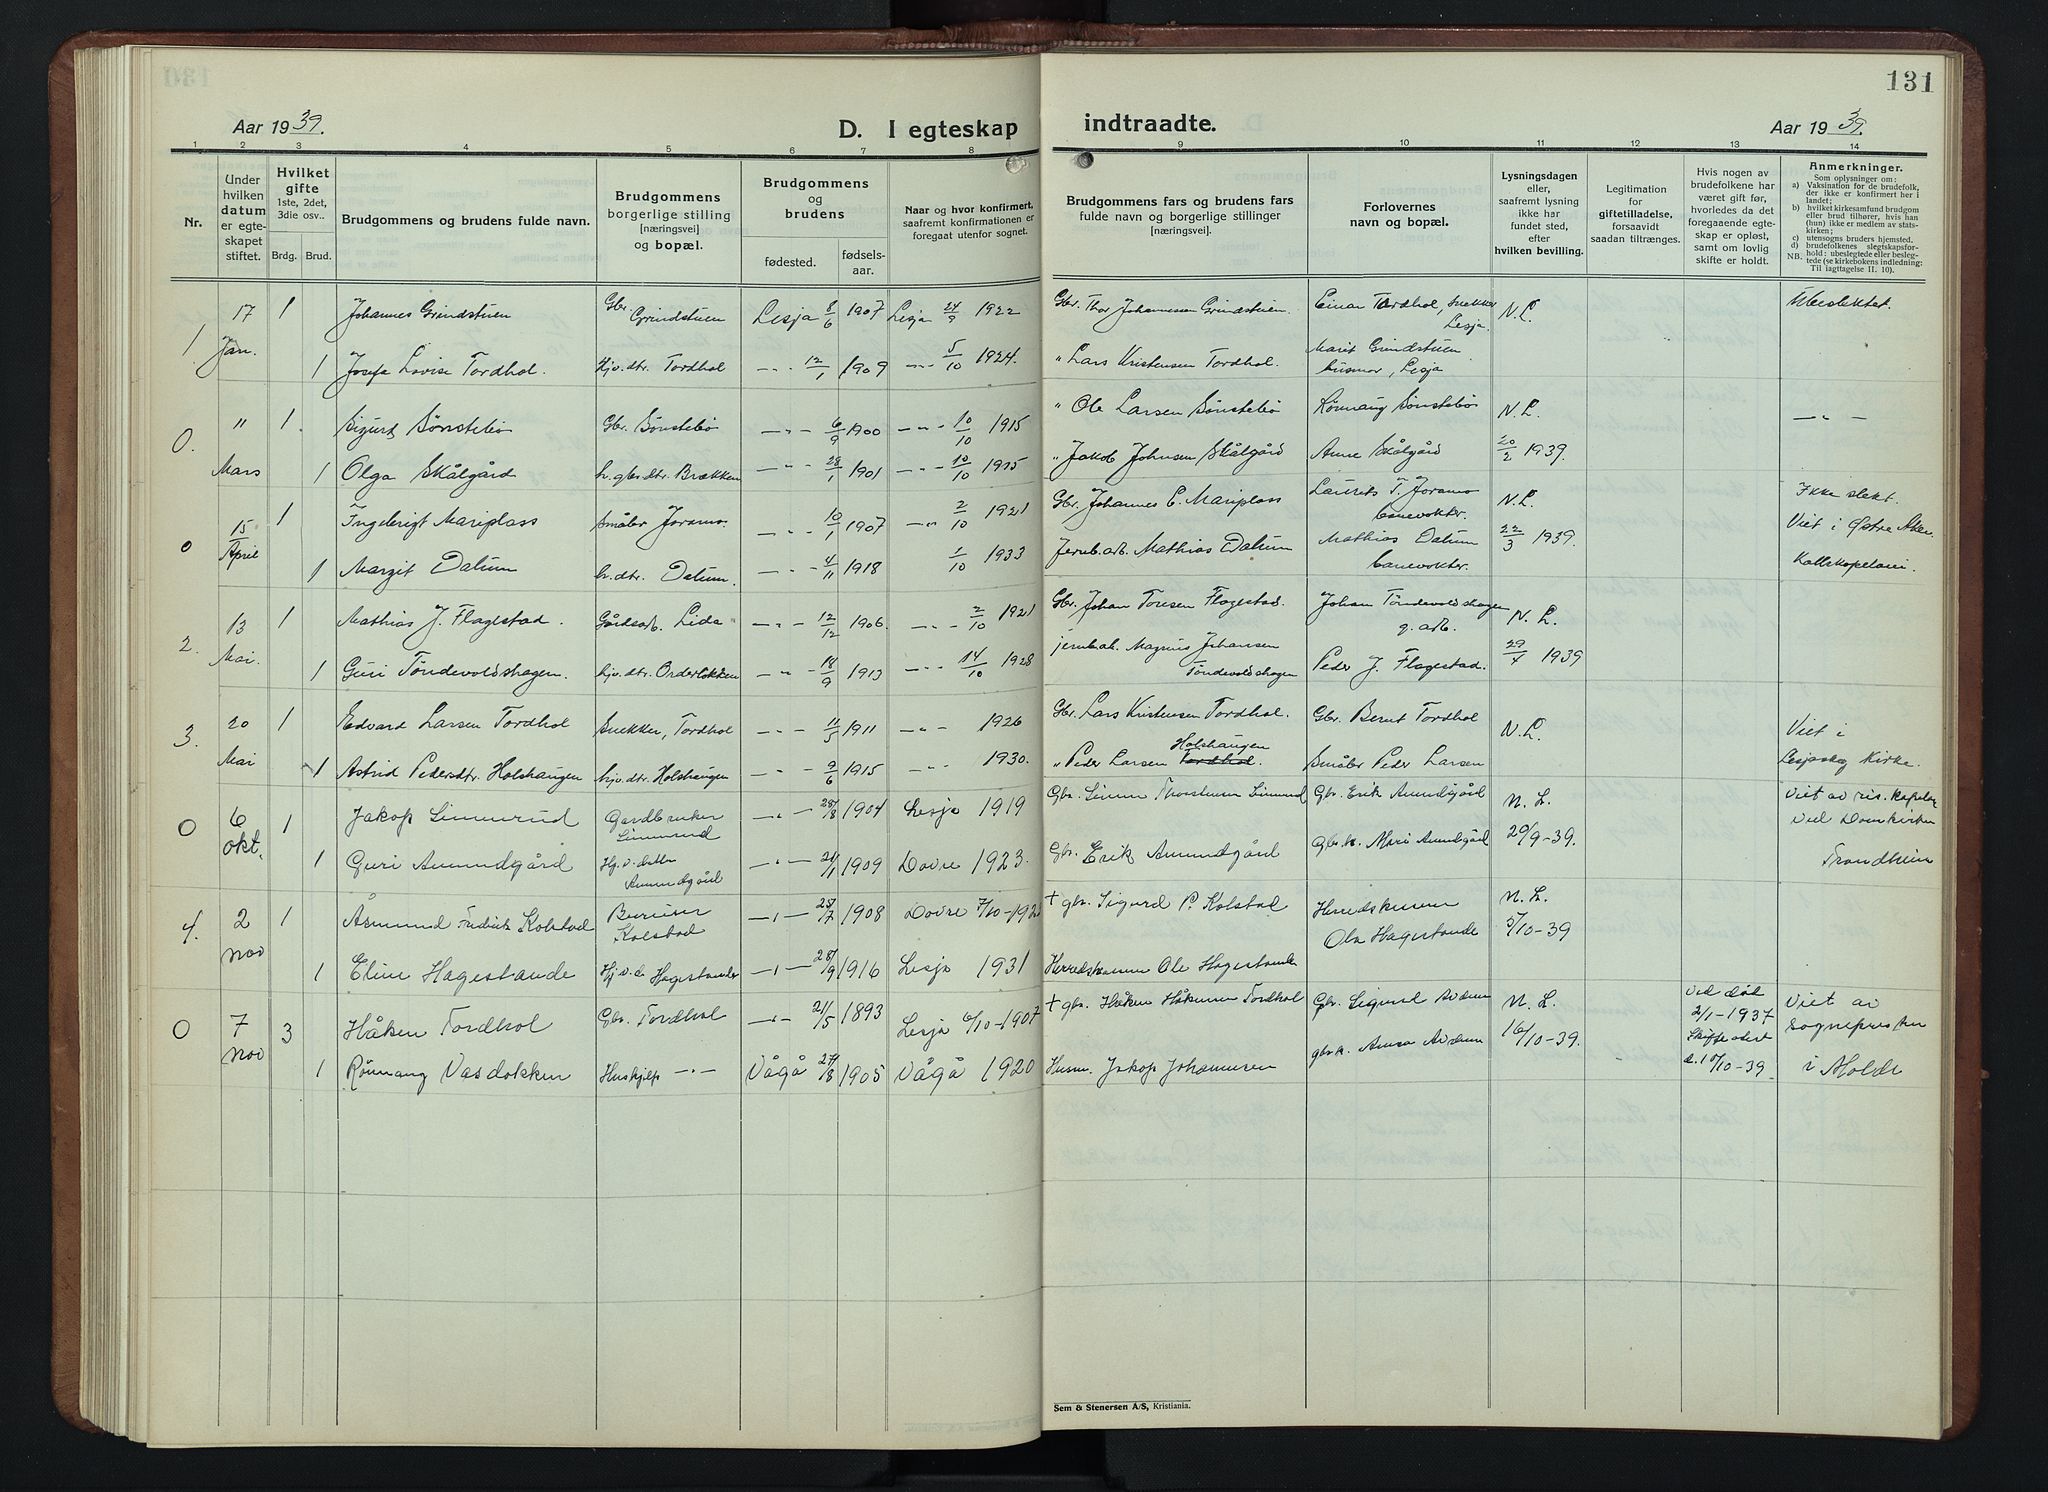 131
Aar 1939.
D. I egteskap
indtraadte.
Aar 1939.
1 2 3 4 5 6 7 8 9 10 11 12 13 14
Nr.
Under hvilken datum er egteskapet stiftet.
Hvilket gifte 1ste, 2det, 3die osv..
Brdg. Brud.
Brudgommens og brudens fulde navn.
Brudgommens borgerlige stilling [næringsvei] og bopæl.
Brudgommens og brudens
fødested. fødselsaar.
Naar og hvor konfirmert, saafremt konfirmationen er foregaat utenfor sognet.
Brudgommens fars og brudens fars fulde navn og borgerlige stillinger [næringsvei].
Forlovernes navn og bopæl.
Lysningsdagen eller, saafremt lysning ikke har fundet sted, efter hvilken bevilling.
Legitimation for giftetilladelse, forsaavidt saadan tiltrænges.
Hvis nogen av brudefolkene har været gift før, hvorledes da det foregaaende egteskap er opløst, samt om lovlig skifte er holdt.
Anmerkninger.
Som oplysninger om:
a) Vaksination for de brudefolk, der ikke er konfirmert her i landet;
b) hvilket kirkesamfund brudgom eller brud tilhører, hvis han (hun) ikke er medlem av statskirken;
c) utensogns bruders hjemsted.
d) brudefolkenes slegtskapsforhold: ubeslegtede eller beslegtede (se kirkebokens indledning; Til iagttagelse II. 10).
NB.
1. 17 Jan. 1 Johannes Grindstuen Gbr. Grindstuen Lesja 8/6 1907 Lesja 24/9 1922 Gbr. Thor Johannessen Grindstuen. Einar Tordhol, snekker Lesja. N.L. Ubeslektet.
1 Josefa Lovise Tordhol. Hjv. dtr. Tordhol -"- 12/1 1909 -"- 5/10 1924. " Lars Kristensen Tordhol. Marit Grindstuen husmor, Lesja
0. " Mars 1 Sigurd Sønstebø Gbr. Sønstebø -"- 6/9 1900 -"- 10/10 1915 " Ole Larsen Sønstebø Rønnaug Sønstebø N.L. -"-
1 Olga Skålgård h. gbs dtr. Brækken -"- 28/1 1901 -"- 10/10 1915 " Jakob Johnsen Skålgård Anne Skålgård 20/2 1939.
0 15 April 1 Ingebrigt Mariplass Småbr. Joramo. -"- 10/1 1907 -"- 2/10 1921 Gbr. Johannes E. Mariplass Laurits T. Joramo banevokter. N.L. Ikke slekt. Viet i Østre Aker
1 Margit Dalum hv. dtr. Dalum. -"- 4/11 1918 1/10 1933 Jernb.arb. Mathias Dalum Mathias Dalum banevokter. 22/3 1939.
2. 13 Mai. 1 Mathias J. Flagestad. Gårdsarb. Lida -"- 12/12 1906. -"- 2/10 1921 Gbr. Johan Toresen Flagestad. Johan Tøndevoldshagen g. arb. N.L.
1 Guri Tøndevoldshagen. hjv. dtr. -"- 18/9 1913 -"- 14/10 1928 jernb.arb. Magnus Johansen Tøndevoldshagen Peder J. Flagestad. 29/4 1939
3. 20 Mai 1 Edvard Larsen Tordhol Snekker, Tordhol -"- 11/5 1911 -"- 1926 Gbr. Lars Kristensen Tordhol. Gbr. Bernt Tordhol N.L. Viet i
1 Astrid Pedersdtr. Holshaugen hjv. dtr. Holshaugen -"- 9/6 1915 -"- 1930. " Peder Larsen Tordhol. Holshaugen Småbr. Peder Larsen Lesjaskog Kirke.
0 6 okt. 1 Jakop Linnerud Gardbruker Linnerud -"- 28/8 1904 Lesja 1919 Gbr. Simen Thorstensen Linnerud Gbr. Erik Amundgård N.L. Viet av res. kapelan ved Domkirken Trondheim
1 Guri Amundgård Hj. v. datter Amundgård -"- 21/1 1909 Dovre 1923. Gbr. Erik Amundgård Gbr.k. Mari Amundgård 20/9-39.
4. 2 nov 1 Åsmund Fredrik Kolstad Bureiser Kolstad -"- 25/7 1908 Dovre 7/10-192 + gbr. Sigurd P. Kolstad Herredskasserer Ola Hagestande N.L. 5/10-39
1 Eline Hagestande Hj. v. d. Hagestande -"- 28/9 1916 Lesja 1931 Herredskasserer Ole Hagestande
0 7 nov 3 Håken Tordhol Gbr. Tordhol -"- 21/5 1893 Lesja 6/10-1907 + gbr. Håken Håkensen Tordhol Gbr. Sigurd Avdem N.L. Ved død 2/1-1937 Skifte utlst d. 10/10-39 Viet av sognepresten i Molde
1 Rønnaug Vasdokken Huskjelp -"- Vågå 27/8 1905 Vågå 1920 Husm. Jakop Johannesen gbr.k. Anna Avdem 16/10-39.
Sem & Stenersen A/S, Kristiania.